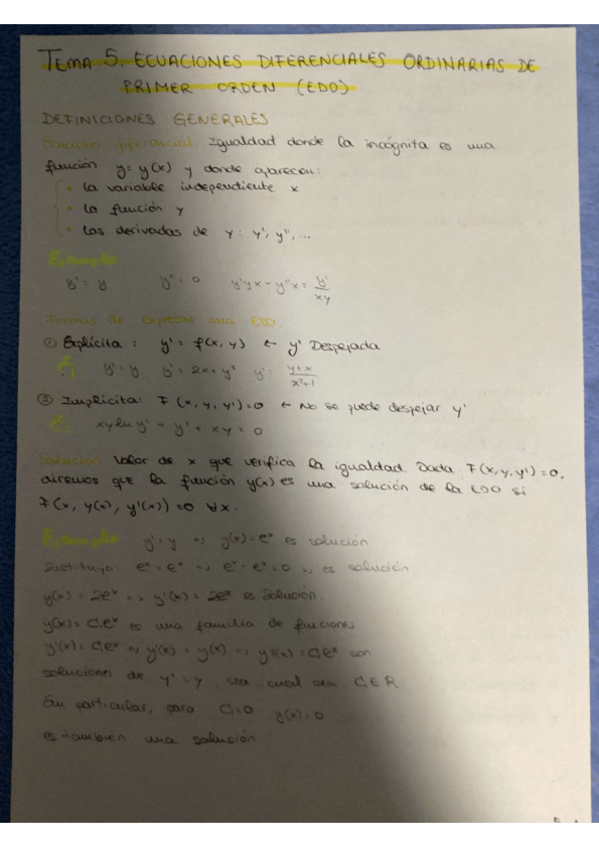 TEMA 5. ECUACIONES DIFERENCIALES ORDINARIAS DE
PRIMER ORDEN (EDO)
DEFINICIONES GENERALES
Ecuación diferencial Igualdad donde la incógnita es una
función y = y(x) y donde aparecen:
• La variable independiente x
• La función y
• Las derivadas de y: y', y", ...
Ejemplo
y' = y y" = 0 y'yx - y"x = y'/xy
Formas de expresar una EDO.
① Explícita: y' = f(x, y) ← y' Despejada
y' = y
② Implícita: F(x, y, y') = 0 ← No se puede despejar y'
xy ln y' + y' + xy = 0
Solución Valor de x que verifica la igualdad. Dada F(x, y, y') = 0,
diremos que la función y(x) es una solución de la EDO si
F(x, y(x), y'(x)) = 0 ∀x.
Ejemplo y' = y => y(x) = eˣ es solución
Sustituyo: eˣ = eˣ => eˣ - eˣ = 0 => es solución
y(x) = 2eˣ => y'(x) = 2eˣ es solución.
y(x) = C₁eˣ es una familia de funciones
y'(x) = C₁eˣ => y'(x) = y(x) => y(x) = C₁eˣ son
soluciones de y' = y sea cual sea C₁ ∈ R
En particular, para C₁ = 0 y(x) = 0
es también una solución